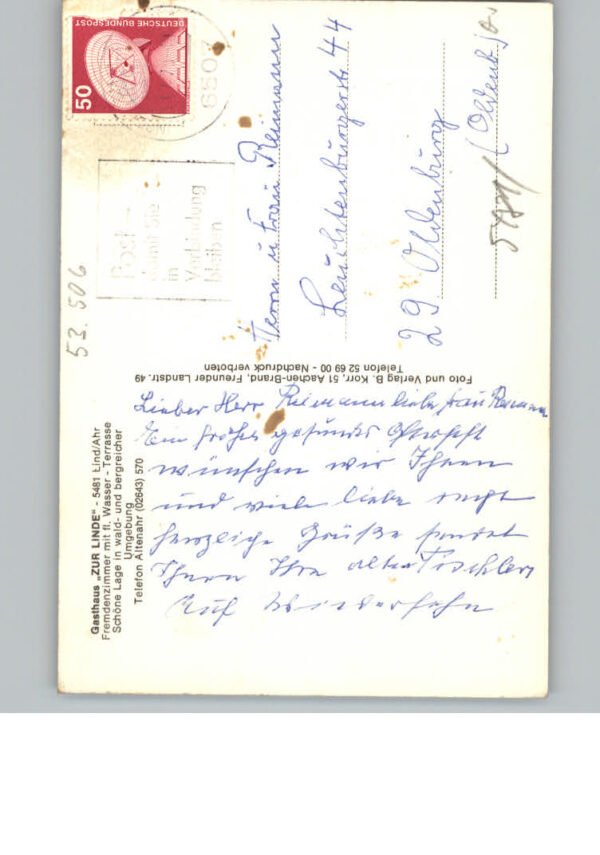 Gasthaus „ZUR LINDE" - 5481 Lind/Ahr
Fremdenzimmer mit fl. Wasser - Terrasse
Schöne Lage in wald- und bergreicher
Umgebung
Telefon Altenahr (02643) 570
Lieber Herr Reimann liebe Frau Reimann
Ein frohes gesundes Osterfest
wünschen wir Ihnen
und viele liebe recht
herzliche Grüße sendet
Ihnen Ihre alten Tischlers
Auf Wiedersehn
Foto und Verlag B. Korr, 51 Aachen-Brand, Freunder Landstr. 49
Telefon 52 69 00 - Nachdruck verboten
53.506
DEUTSCHE BUNDESPOST
50
650
Post -
damit Sie
in
Verbindung
bleiben
Herrn u Frau Reimann
Leuchtenburgerstr 44
29 Oldenburg
(Oldenb)